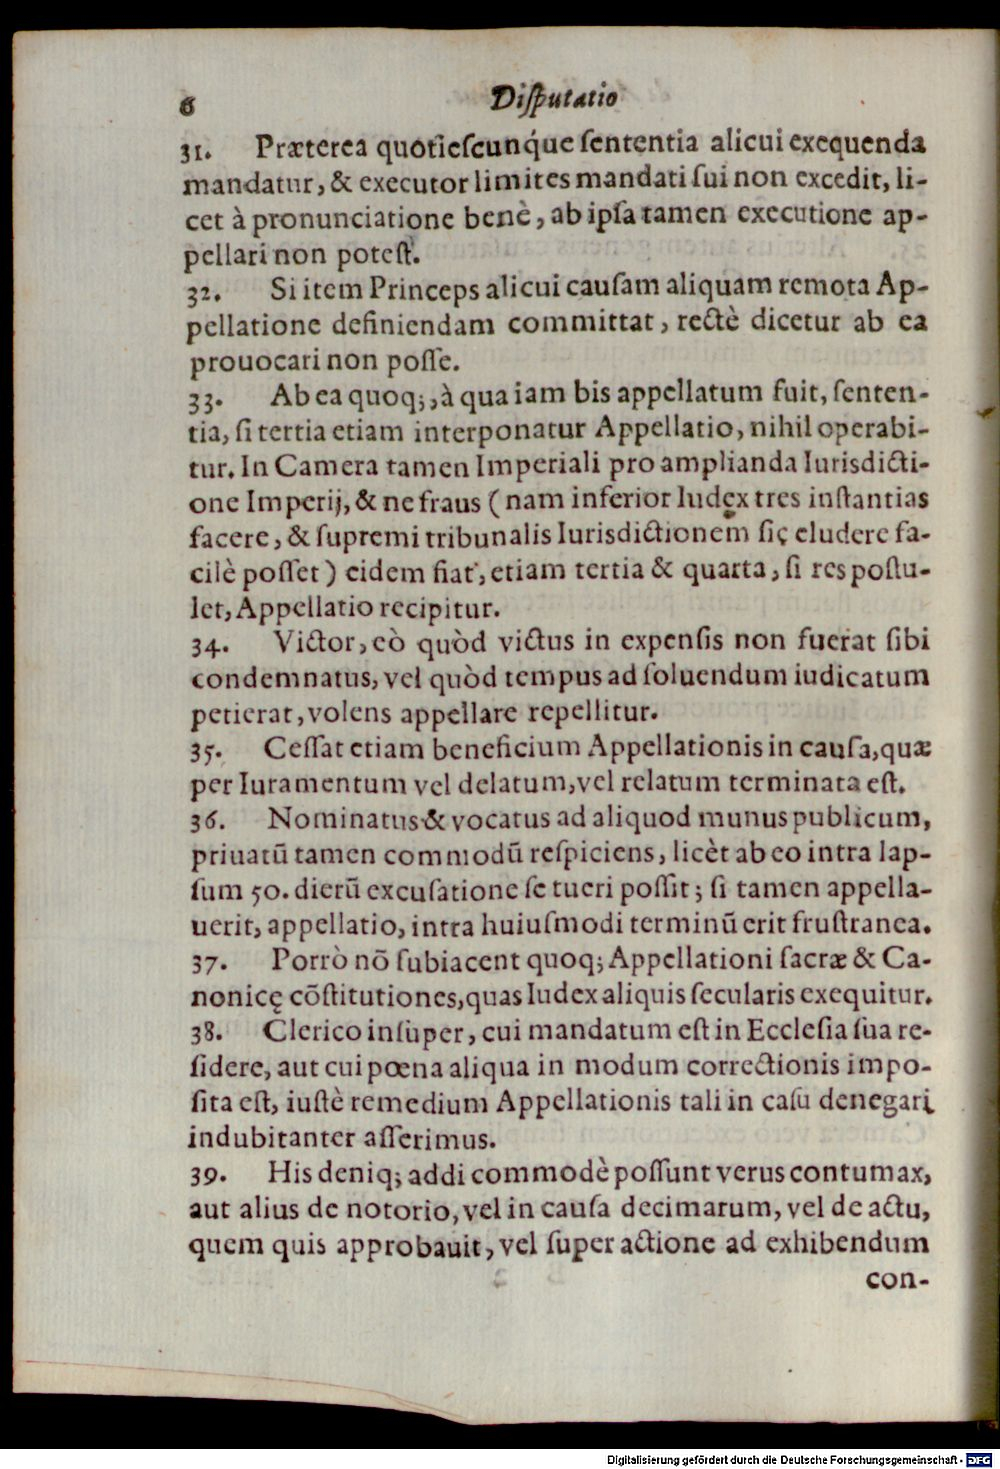 6 Diſputatio
31. Præterea quotieſcunq́ue ſententia alicui exequenda
mandatur, & executor limites mandati ſui non excedit, li-
cet à pronunciatione benè, ab ipſa tamen executione ap-
pellari non poteſt.
32. Si item Princeps alicui cauſam aliquam remota Ap-
pellatione definiendam committat, rectè dicetur ab ea
prouocari non poſſe.
33. Ab ea quoq;, à qua iam bis appellatum fuit, ſenten-
tia, ſi tertia etiam interponatur Appellatio, nihil operabi-
tur. In Camera tamen Imperiali pro amplianda Iurisdicti-
one Imperij, & ne fraus (nam inferior Iudex tres inſtantias
facere, & ſupremi tribunalis Iurisdictionem ſic eludere fa-
cilè poſſet) eidem fiat, etiam tertia & quarta, ſi res poſtu-
let, Appellatio recipitur.
34. Victor, eò quòd victus in expenſis non fuerat ſibi
condemnatus, vel quòd tempus ad ſoluendum iudicatum
petierat, volens appellare repellitur.
35. Ceſſat etiam beneficium Appellationis in cauſa, quæ
per Iuramentum vel delatum, vel relatum terminata eſt.
36. Nominatus & vocatus ad aliquod munus publicum,
priuatū tamen commodū reſpiciens, licèt ab eo intra lap-
ſum 50. dierū excuſatione ſe tueri poſſit; ſi tamen appella-
uerit, appellatio, intra huiuſmodi terminū erit fruſtranea.
37. Porrò nō ſubiacent quoq; Appellationi ſacræ & Ca-
nonicę cōſtitutiones, quas Iudex aliquis ſecularis exequitur.
38. Clerico inſuper, cui mandatum eſt in Eccleſia ſua re-
ſidere, aut cui pœna aliqua in modum correctionis impo-
ſita eſt, iuſtè remedium Appellationis tali in caſu denegari
indubitanter aſſerimus.
39. His deniq; addi commodè poſſunt verus contumax,
aut alius de notorio, vel in cauſa decimarum, vel de actu,
quem quis approbauit, vel ſuper actione ad exhibendum
con-
Digitalisierung gefördert durch die Deutsche Forschungsgemeinschaft - DFG